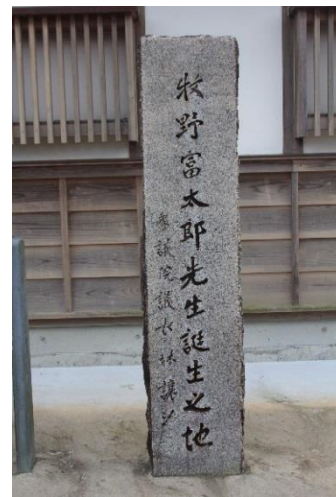 牧野富太郎先生誕生之地
参議院議長林讓治